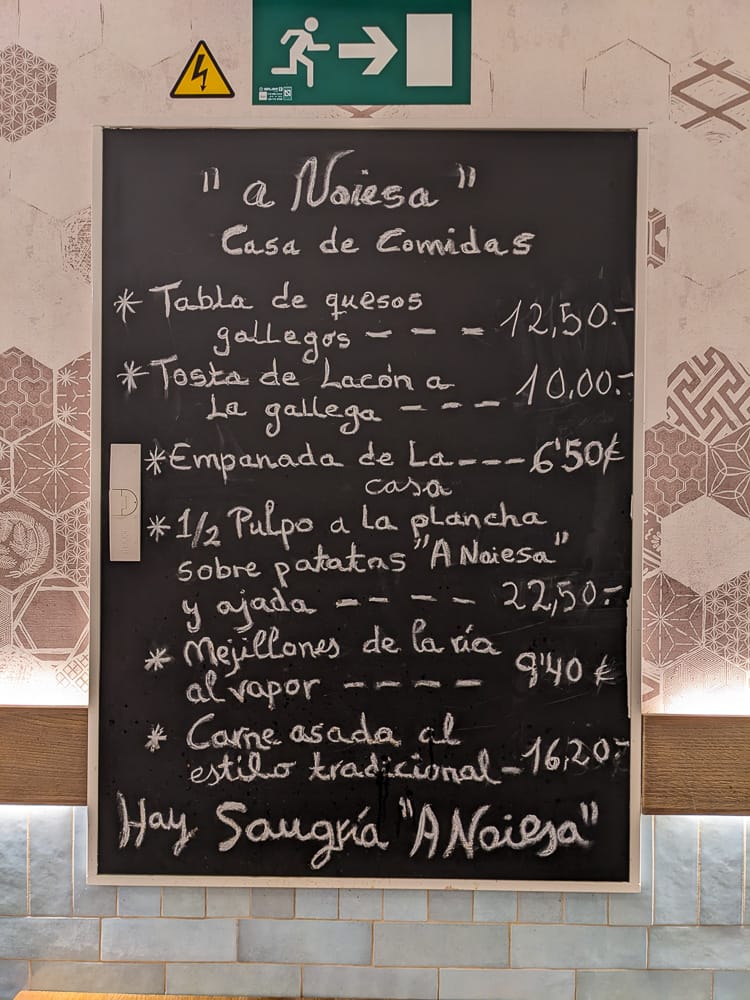 "a Noiesa"
Casa de Comidas
* Tabla de quesos
gallegos - - - 12,50.-
* Tosta de Lacón a
La gallega - - - 10,00.-
* Empanada de La - - - 6'50€
casa
* 1/2 Pulpo a La plancha
sobre patatas "A Noiesa"
y ajada - - - - 22,50.-
* Mejillones de la ría
al vapor - - - - 9'40 €
* Carne asada al
estilo tradicional - 16,20.-
Hay Sangría "A Noiesa"